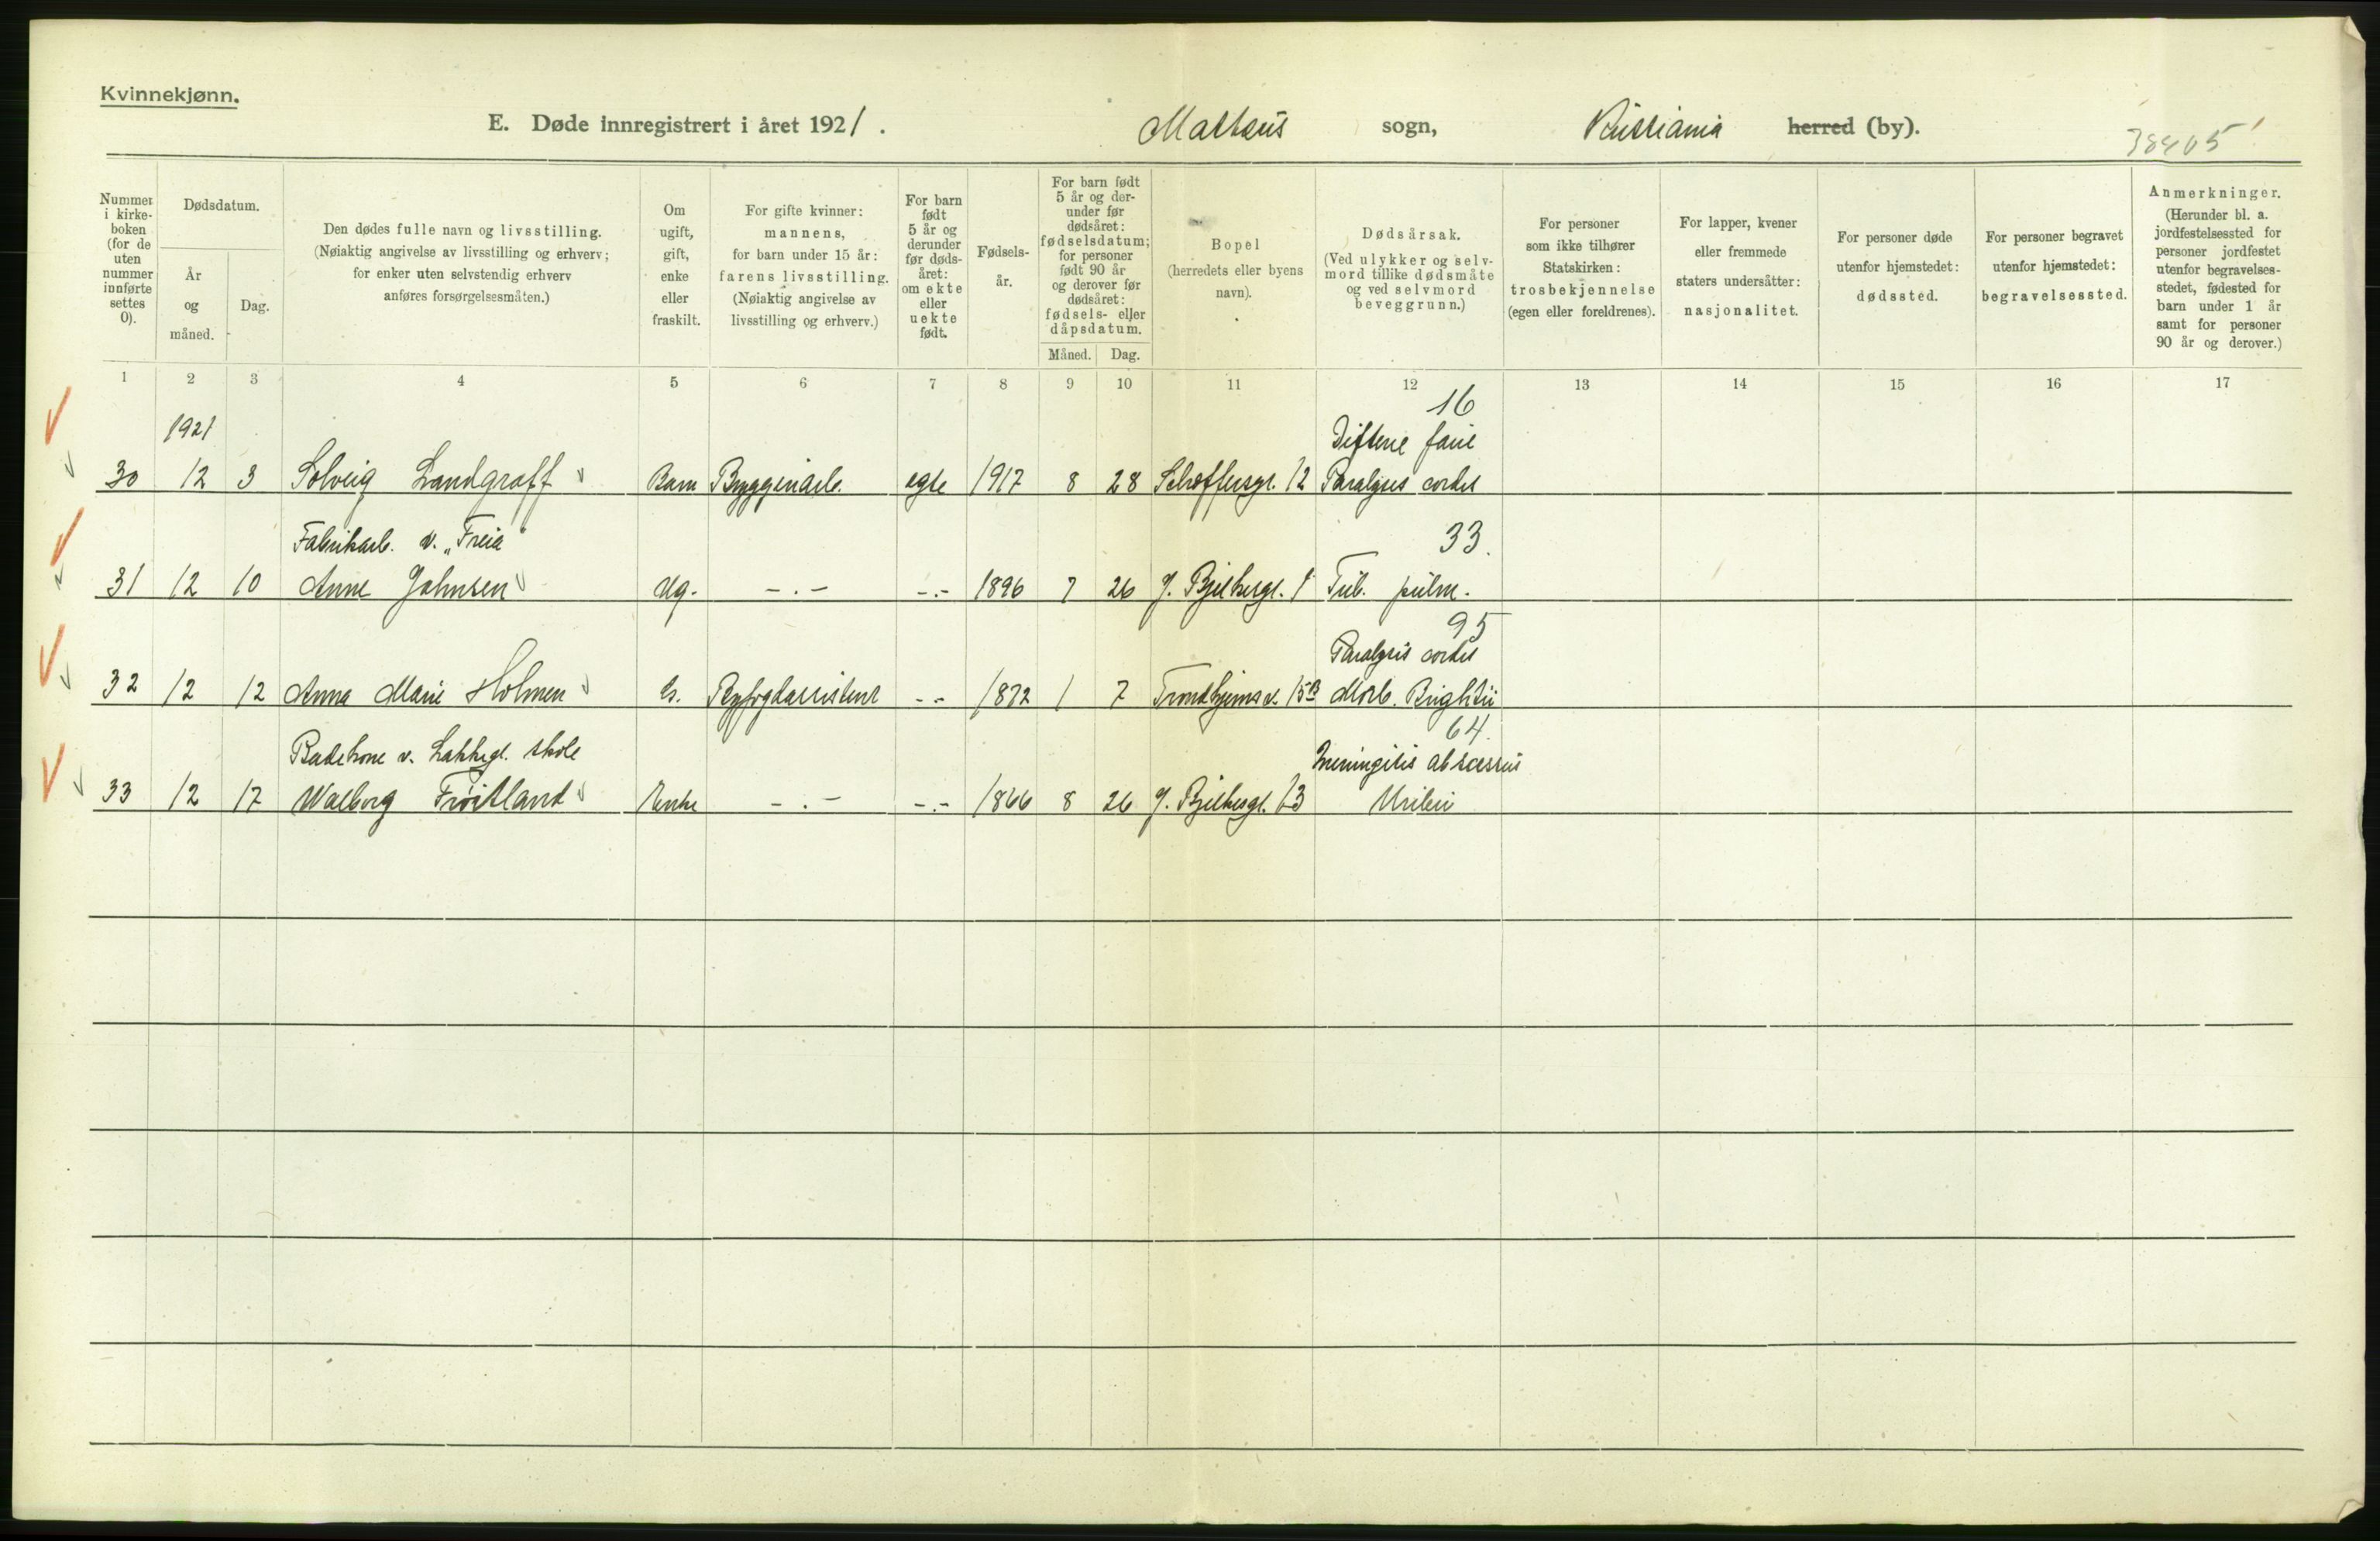 Kvinnekjønn.
E. Døde innregistrert i året 1921. Matteus sogn, Kristiania herred (by).
Nummer i kirkeboken (for de uten nummer innførte settes 0).
Dødsdatum.
År og måned.
Dag.
Den dødes fulle navn og livsstilling.
(Nøiaktig angivelse av livsstilling og erhverv;
for enker uten selvstendig erhverv
anføres forsørgelsesmåten.)
Om ugift, gift, enke eller fraskilt.
For gifte kvinner:
mannens,
for barn under 15 år:
farens livsstilling.
(Nøiaktig angivelse av
livsstilling og erhverv.)
For barn født 5 år og derunder før dødsåret: om ekte eller uekte født.
Fødselsår.
For barn født 5 år og derunder før dødsåret: fødselsdatum; for personer født 90 år og derover før dødsåret: fødsels- eller dåpsdatum.
Måned. Dag.
Bopel
(herredets eller byens
navn).
Dødsårsak.
(Ved ulykker og selvmord tillike dødsmåte
og ved selvmord
beveggrunn.)
For personer
som ikke tilhører
Statskirken:
trosbekjennelse
(egen eller foreldrenes).
For lapper, kvener
eller fremmede
staters undersåtter:
nasjonalitet.
For personer døde
utenfor hjemstedet:
dødssted.
For personer begravet
utenfor hjemstedet:
begravelsessted.
Anmerkninger.
(Herunder bl. a.
jordfestelsessted for
personer jordfestet
utenfor begravelses-
stedet, fødested for
barn under 1 år
samt for personer
90 år og derover.)
1 2 3 4 5 6 7 8 9 10 11 12 13 14 15 16 17
16
1921 Difteri
30 12 3 Solveig Landgraff Barn Bryggeriarb. egte 1917 8 28 Schæffersgt. 12 Paralysis cordis
Fabrikarb. v. „Freia" 33.
31 12 10 Anne Johnsen Ug. -.- -.- 1896 7 26 J. Bjelkesgt. 1 Tub. pulm.
95
Paralysis cordis
32 12 12 Anna Marie Holmen G. 1872 1 7 Trondhjemsv. 15B Morb. Brightii
64.
Badekone v. Lakkegt. skole Meningitis abscessus
33 12 17 Walborg Frøitland Enke -.- -.- 1866 8 26 J. Bjelkesgt. 13